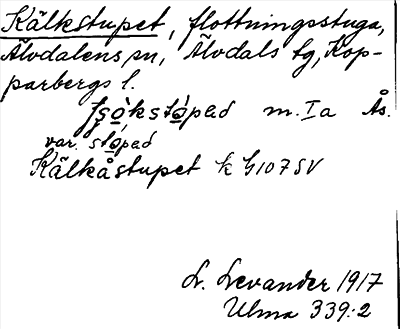 Kälkstupet, flottningsstuga,
Älvdalens sn, Älvdals tg, Kop-
parbergs l.
m. Ia Ås.
var. stópad
Kälkåstupet k G107SV
L. Levander 1917
Ulma 339:2